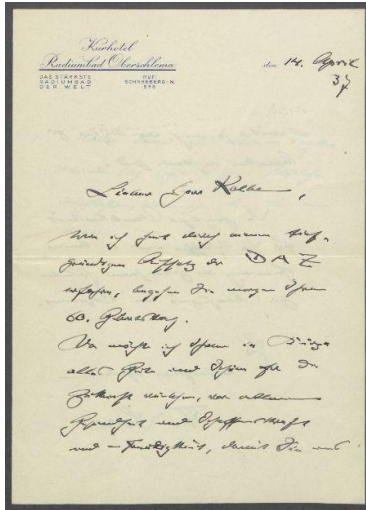 Kurhotel
Radiumbad Oberschlema
DAS STÄRKSTE
RADIUMBAD
DER WELT
RUF:
SCHNEEBERG-N.
den 14. April
37
Lieber Herr Kolbe,
wie ich
Aufsatz der DAZ
, begehen Sie morgen Ihren
60. Geburtstag.
Da möchte ich Ihnen in
alles Gute und Schöne für die
Zukunft wünschen, vor allem
Gesundheit und Schaffenskraft
und – freudigkeit, damit Sie uns